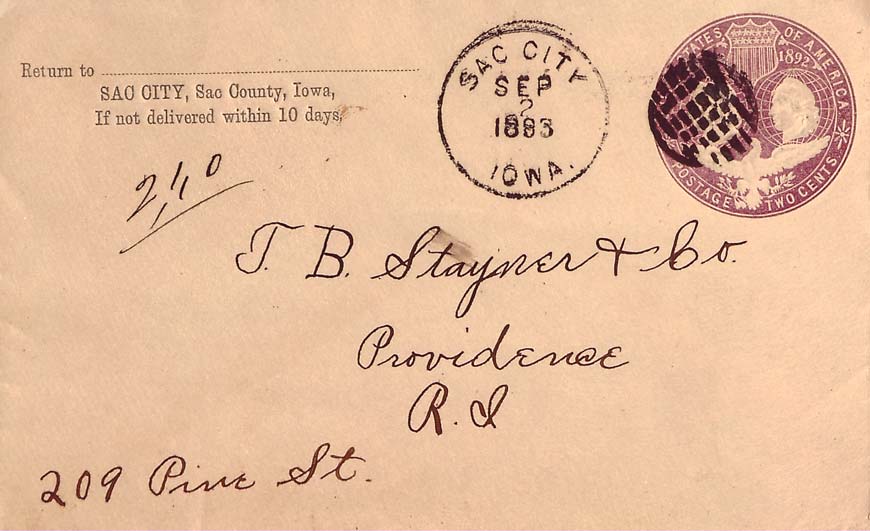 Return to
SAC CITY, Sac County, Iowa,
If not delivered within 10 days,
SAC CITY
SEP
2
1893
IOWA.
STATES OF AMERICA
1892
POSTAGE TWO CENTS
T. B. Stayner & Co.
Providence
R. I
209 Pine St.